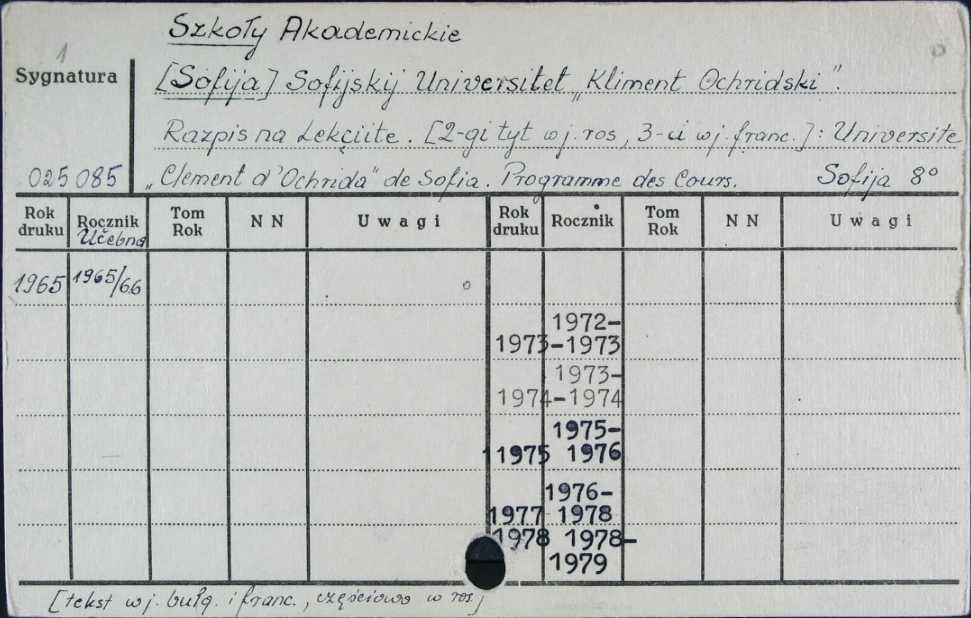 Szkoły Akademickie
1
Sygnatura
[Sofija] Sofijskij Universitet „Kliment Ochridski".
Razpis na Lekciite. [2-gi tyt w j. ros, 3-ci w j. franc.]: Universite
025085 „Clement d'Ochrida" de Sofia. Programme des Cours. Sofija 8°
Rok druku Rocznik Učebna Tom Rok N N Uwagi Rok druku Rocznik Tom Rok N N Uwagi
1965 1965/66
1972-
1973-1973
1973-
1974-1974
1975-
11975 1976
1976-
1977 1978
1978 1978-
1979
[tekst w j. bułg. i franc., częściowo w ros]